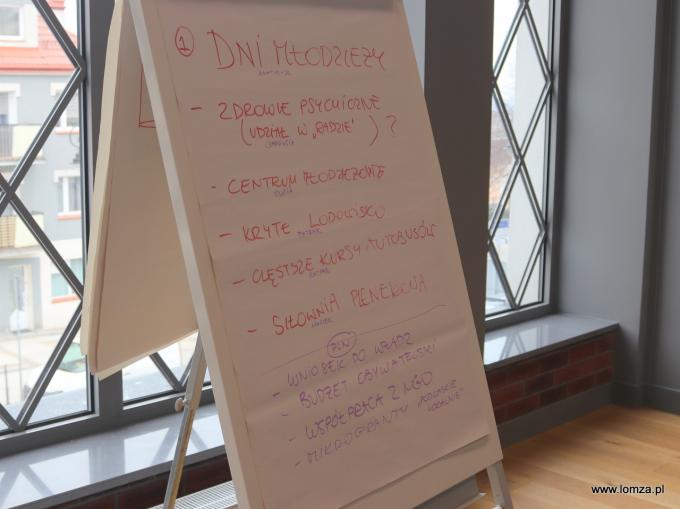 ① DNI MŁODZIEŻY
- ZDROWIE PSYCHICZNE
(UDZIAŁ W „RADZIE") ?
- CENTRUM MŁODZIEŻOWE
- KRYTE LODOWISKO
- CZĘSTSZE KURSY AUTOBUSÓW
- SIŁOWNIA PLENEROWA
PLN
- WNIOSEK DO WŁADZ
- BUDŻET OBYWATELSKI
- WSPÓŁPRACA Z NGO
- MIKROGRANTY „PODLASKIE LOKALNIE"
www.lomza.pl